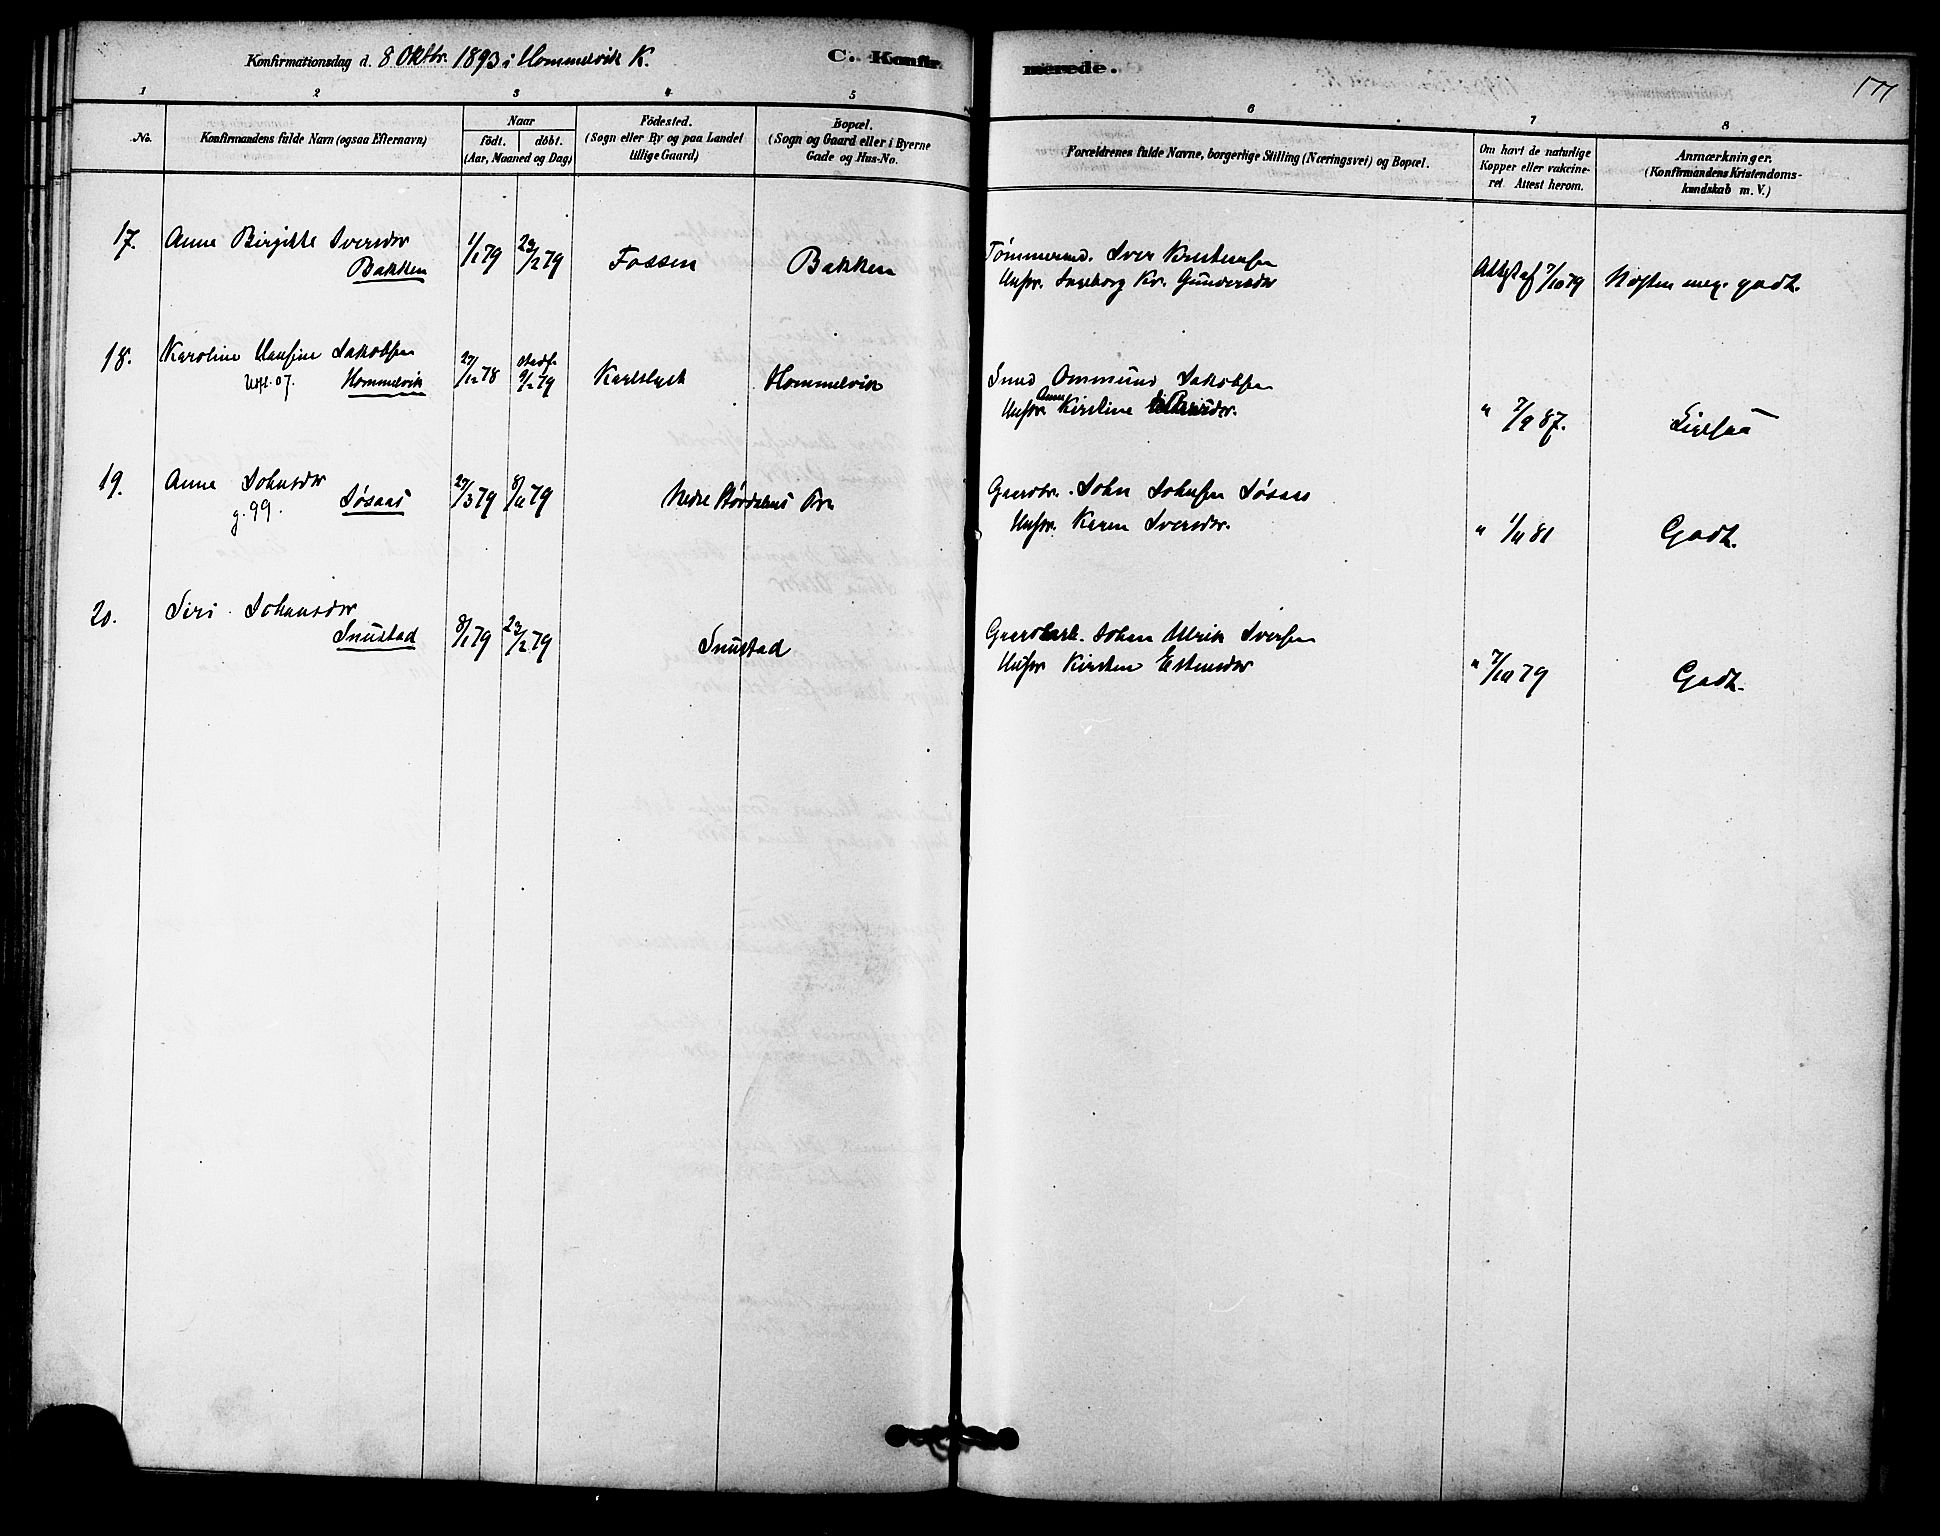 Konfirmationsdag d. 8 Oktbr. 1893 i Hommelvik K.
C. Konfirmerede.
177
1 2 3 4 5 6 7 8
No.
Konfirmandens fulde Navn (ogsaa Efternavn)
Naar
födt. döbt.
(Aar, Maaned og Dag)
Födested.
(Sogn eller By og paa Landet
tillige Gaard)
Bopæl.
(Sogn og Gaard eller i Byerne
Gade og Hus-No.
Forældrenes fulde Navne, borgerlige Stilling (Næringsvei) og Bopæl.
Om havt de naturlige
Kopper eller vakcine-
ret Attest herom.
Anmærkninger.
(Konfirmandens Kristendoms-
kundskab m. V.)
17. Anne Birgitte Iversdtr
Bakken
1/1 79 23/2 79 Fossen Bakken
Tømmermd. Iver
Hustr. Ingeborg Kr. Gundersdtr
Attest af 7/10 79 Næsten meg. godt.
18. Karoline Hansine Jakobsen
Utfl. 07. Hommelvik
27/12 78 stadf. 9/2 79 Karlslyst Hommelvik
Smed Ommund Jakobsen
Hustr. Anne Kirstine
" 7/9 87. Ligesaa
19. Anne Johnsdtr
g. 99. Søsaas
27/3 79 8/6 79 Nedre Stördalens Pr.
Gaardbr. John Johnsen Søsaas
Hustr. Karen Iversdtr.
" 1/11 81 Godt.
20. Siri Johansdtr
Snustad
8/1 79 23/2 79 Snustad
Johan Ulrik Iversen
Hustr Kirsten Estensdtr
" 7/10 79 Godt.